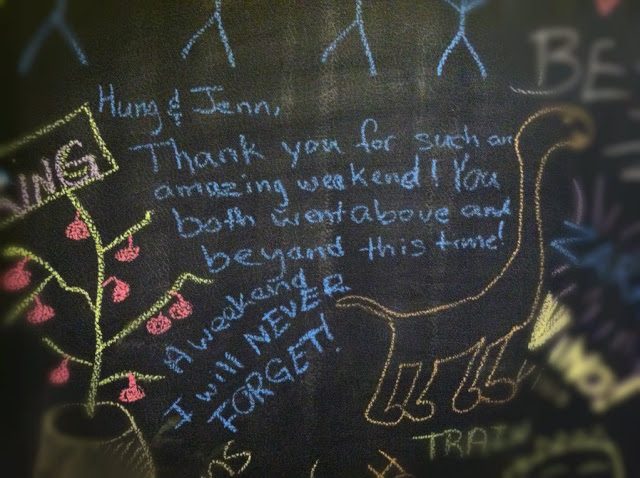 Hung & Jenn,
Thank you for such an
amazing weekend! You
both went above and
beyand this time!
A weekend
I will NEVER
FORGET!
ING
BE
TRAIN